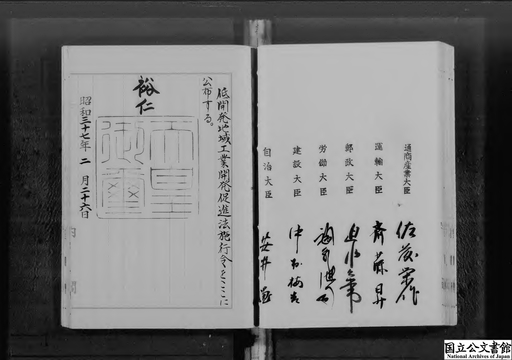 通商産業大臣 佐藤榮作
運輸大臣 斎藤昇
郵政大臣 迫水久常
労働大臣
建設大臣 中村梅吉
自治大臣 安井謙
低開発地域工業開発促進法施行令をここに
公布する。
裕仁
天皇御璽
昭和三十七年二月二十六日
国立公文書館
National Archives of Japan